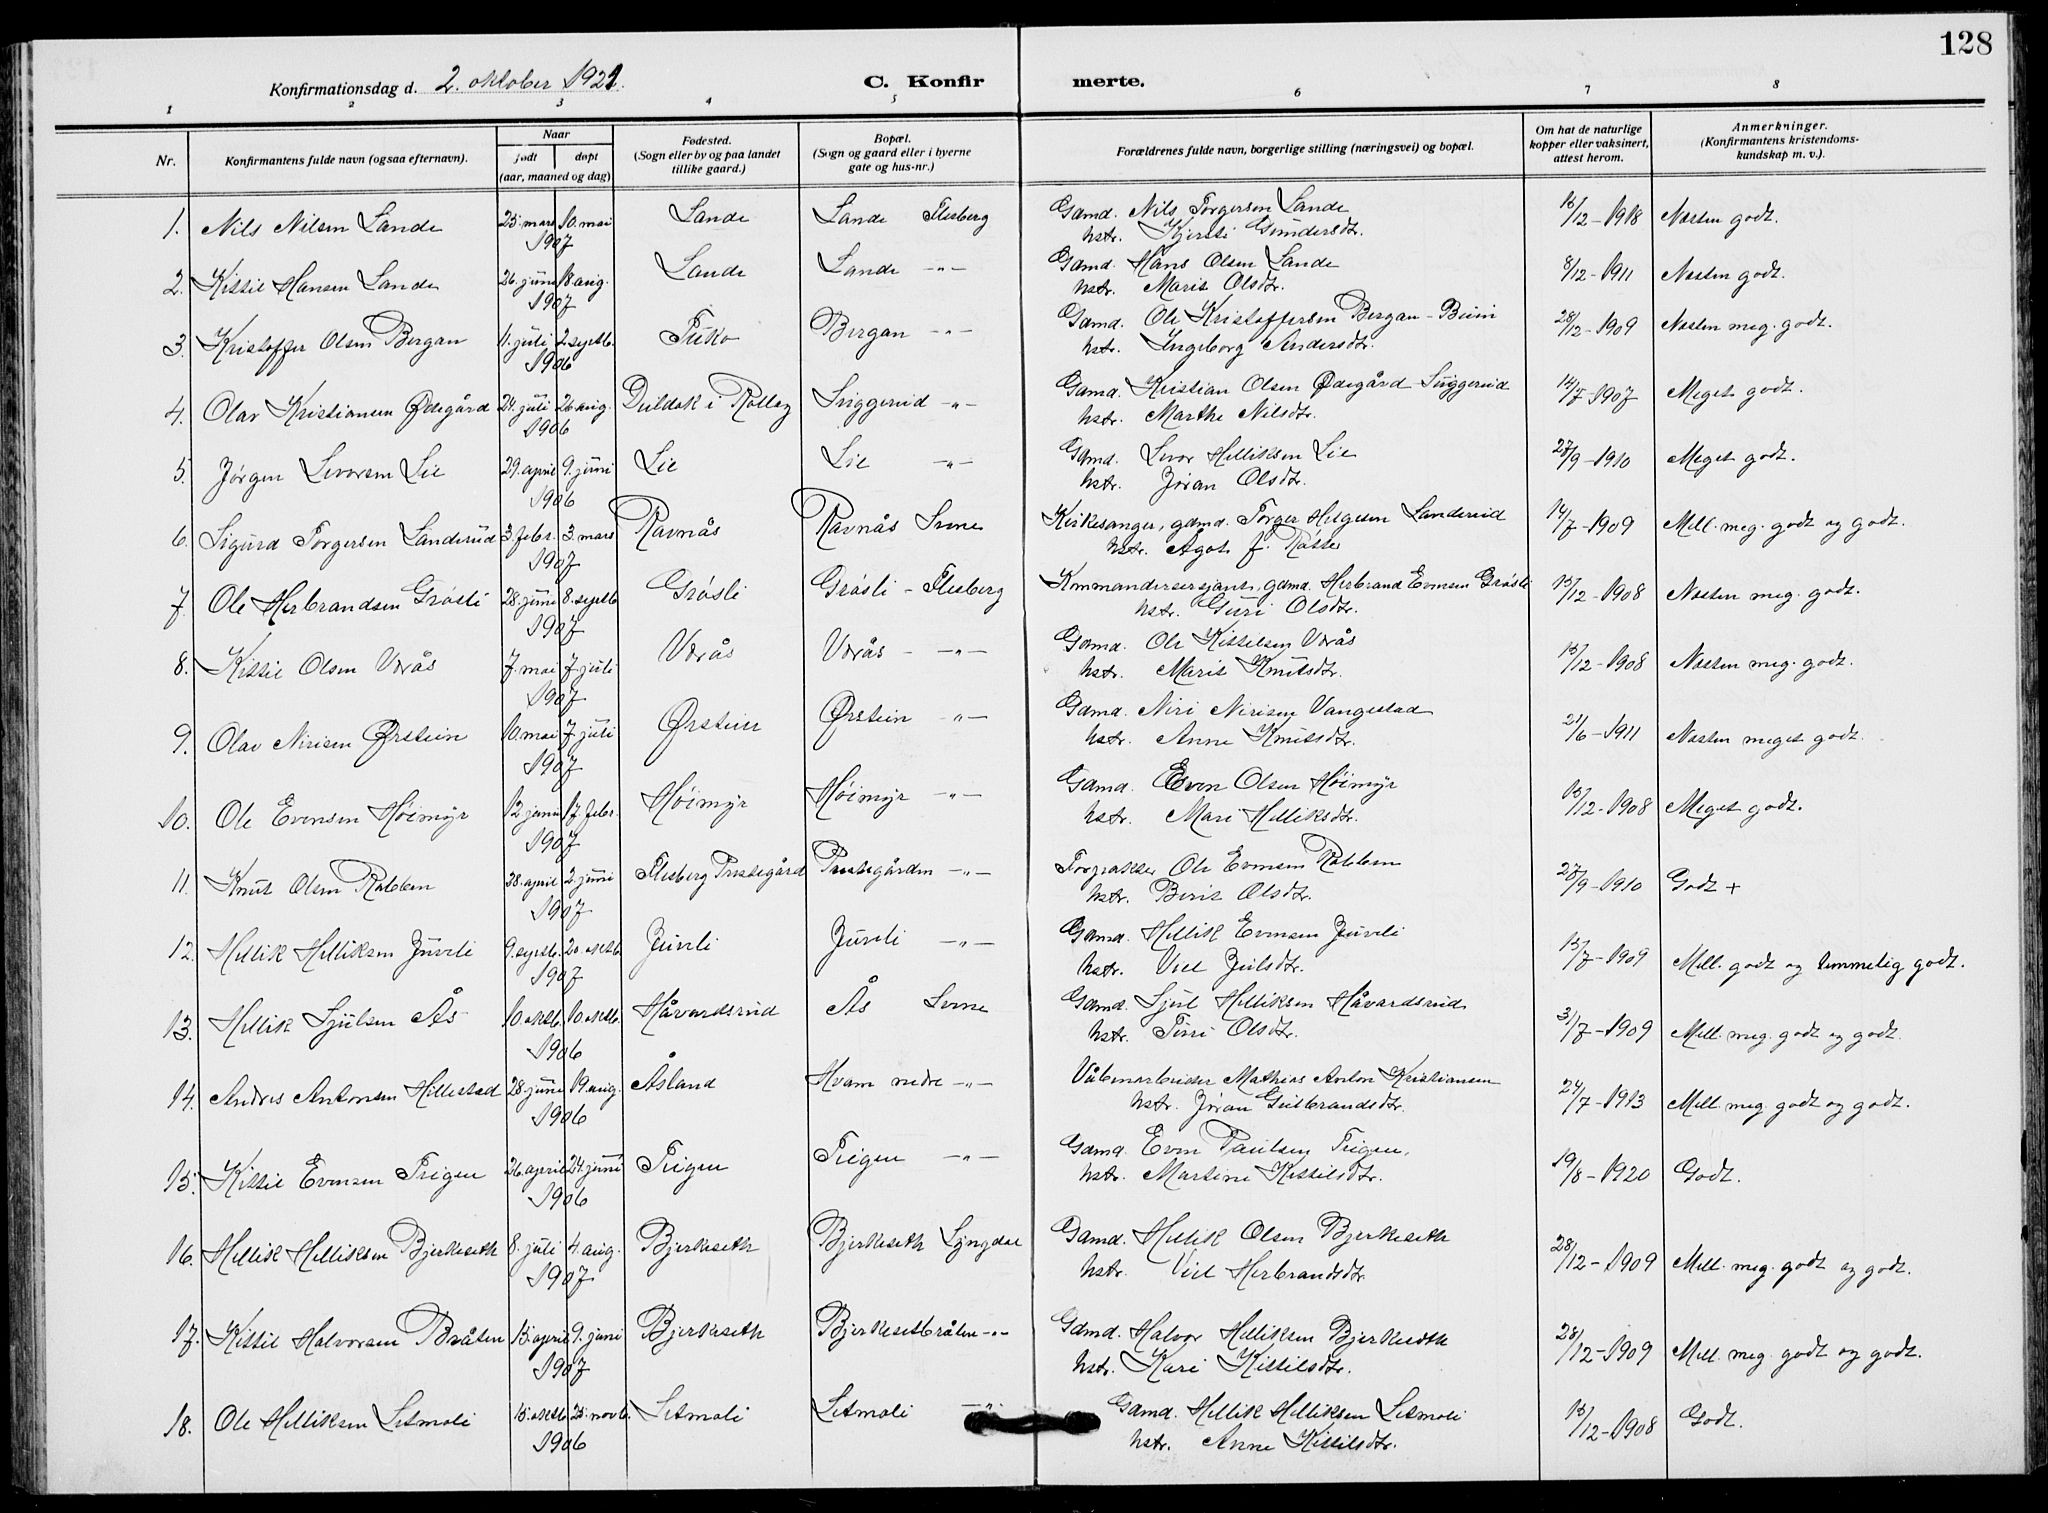 128
Konfirmationsdag d. 2. oktober 1921. C. Konfirmerte.
1 2 3 4 5 6 7 8
Nr. Konfirmantens fulde navn (ogsaa efternavn). Naar født døpt (aar, maaned og dag) Fødested. (Sogn eller by og paa landet tillike gaard.) Bopæl. (Sogn og gaard eller i byerne gate og hus-nr.) Forældrenes fulde navn, borgerlige stilling (næringsvei) og bopæl. Om hat de naturlige kopper eller vaksinert, attest herom. Anmerkninger. (Konfirmantens kristendomskundskap m. v.).
1. Nils Nilsen Lande 25. mars 10. mai Lande Lande Flesberg Gdmd. Nils Torgersen Lande 16/12-1918 Næsten godt.
1907 hstr. Kjersti Gundersdtr.
2. Kittil Hansen Lande 26. juni 18. aug. Lande Lande -"- Gdmd. Hans Olsen Lande 8/12-1911 Næsten godt.
1907 hstr. Marit Olsdtr.
3. Kristoffer Olsen Bergan 11. juli 2. septb. Fuko Bergan -"- Gdmd. Ole Kristoffersen Bergan-Buin 28/12-1909 Næsten meg. godt.
1906 hstr. Ingeborg Andersdtr.
4. Olav Kristiansen Ødegård 24. juli 26 aug. Duldok i Rollag Suggerud -"- Gdmd. Kristian Olsen Ødegård-Suggerud 14/7-1907 Meget godt.
1906 hstr. Marthe Nilsdtr.
5. Jørgen Levorsen Lie 29. april 9. juni Lie Lie -"- Gdmd. Levor Helliksen Lie 27/9-1910 Meget godt.
1906 hstr. Jøran Olsdtr.
6. Sigurd Torgersen Landerud 3. febr. 3. mars Ravnås Ravnås Svene Kirkesanger, gdmd. Torger Helgesen Landerud 14/7-1909 Mell. meg. godt og godt.
1907 hstr. Ågot f. Ratte
7. Ole Herbrandsen Grøsli 28. juni 8. septb Grøsli Grøsli - Flesberg Kommandersersjant, gdmd. Herbrand Evensen Grøsli 15/12-1908 Næsten meg. godt.
1907 hstr. Guri Olsdtr.
8. Kittil Olsen Værås 7. mai 7. juli Værås Værås -"- Gdmd. Ole Kittelsen Værås 15/12-1908 Næsten meg. godt.
1907 hstr. Marit Knutsdtr.
9. Olav Nirisen Ørstein 10. mai 7. juli Ørstein Ørstein -"- Gdmd. Niri Nirisen Vangestad 21/6-1911 Næsten meget godt.
1907 hstr. Anne Knutsdtr.
10. Ole Evensen Høimyr 12. janu 17. febr. Høimyr Høimyr -"- Gdmd. Even Olsen Høimyr 15/12-1908 Meget godt.
1907 hstr. Mari Helliksdtr.
11. Knut Olsen Rabben 28. april 2. juni Flesberg Prestegård Prestegården -"- Forpakter Ole Evensen Rabben 27/9-1910 Godt +
1907 hstr. Berit Olsdtr.
12. Hellik Helliksen Juveli 9. septb. 20. oktb Juveli Juveli -"- Gdmd. Hellik Evensen Juveli 13/7-1909 Mell. godt og temmelig godt.
1907 hstr. Viel Juelsdtr.
13. Hellik Sjulsen Ås 10. oktb. 10. oktb. Håvardsrud Ås Svene Gdmd. Sjul Helliksen Håvardsrud 31/7-1909 Mell. meg. godt og godt.
1906 hstr. Turi Olsdtr.
14. Andres Antonsen Hillestad 28. juni 19. aug. Åsland Hvam nedre -"- Våbenarbeider Mathias Anton Kristiansen 24/7-1913 Mell. meg. godt og godt.
1906 hstr. Jøran Gulbrandsdtr.
15. Kittil Evensen Teigen 26. april 24. juni Teigen Teigen -"- Gdmd. Even Paulsen Teigen, 19/8-1920 Godt.
1906 hstr. Martine Kittilsdtr.
16. Hellik Helliksen Bjerkeseth 8. juli 4. aug. Bjerkeseth Bjerkeseth Lyngdal Gdmd. Hellik Olsen Bjerkeseth 28/12-1909 Mell. meg. godt og godt.
1907 hstr. Viel Herbrandsdtr.
17. Kittil Halvorsen Bråten 15. april 9. juni Bjerkeseth Bjerkesetbråten -"- Gdmd. Halvor Helliksen Bjerkeseth 28/12-1909 Mell. meg. godt og godt.
1907 hstr. Kari Kittilsdtr.
18. Ole Helliksen Letmoli 15. oktb. 25. novb. Letmoli Letmoli -"- Gdmd. Hellik Helliksen Letmoli 15/12-1908 Godt.
1906 hstr. Anne Kittilsdtr.